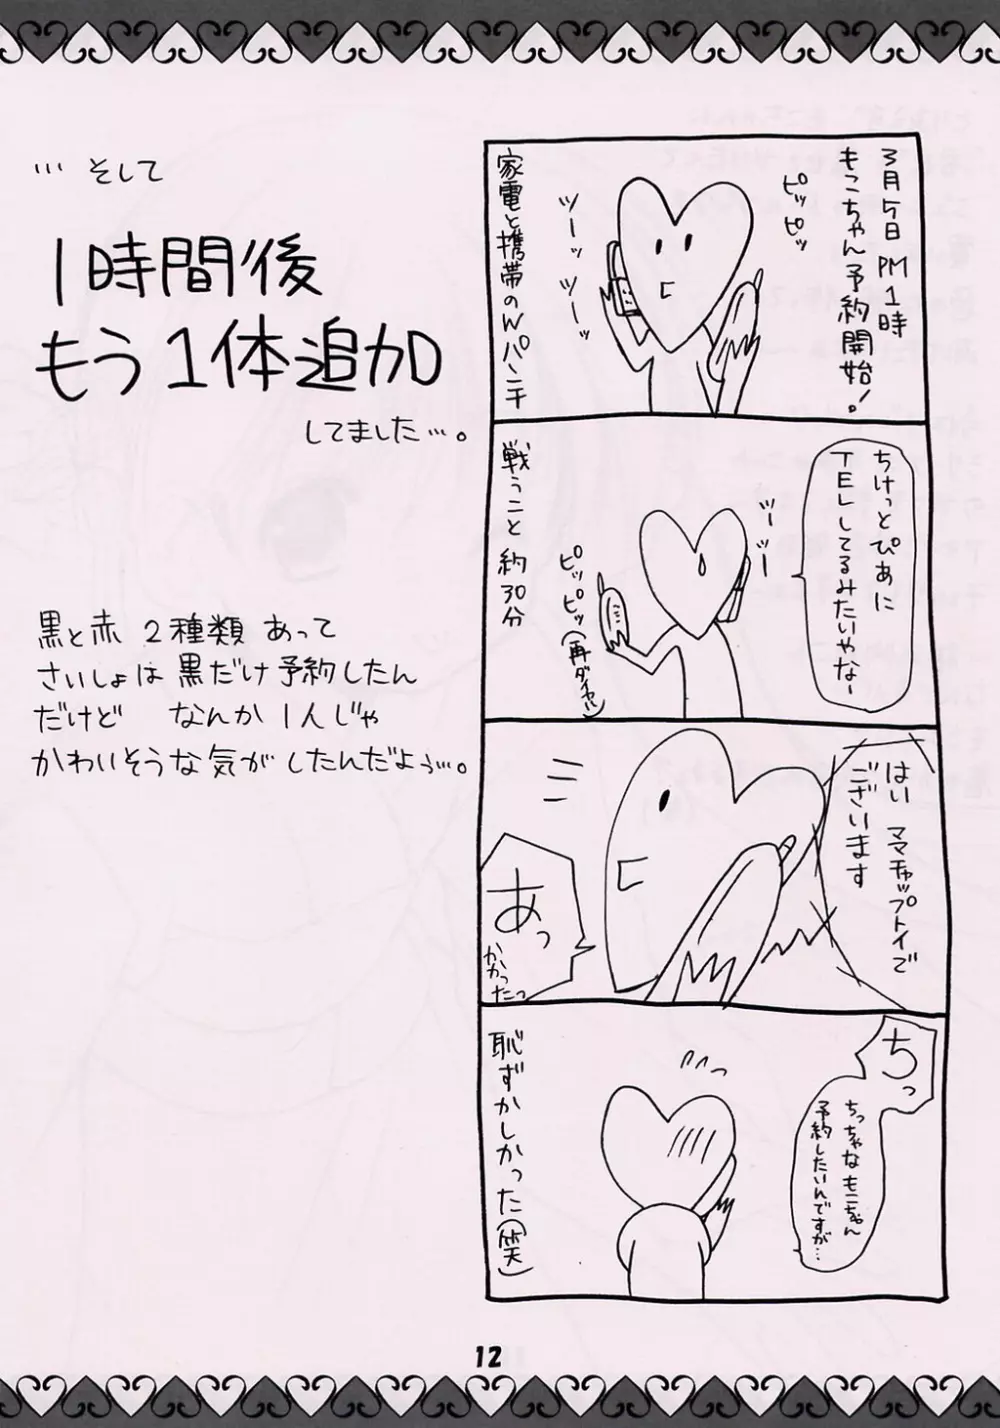 3月5日 PM1時
もこちゃん予約開始!
ピッピッ
ツーッツーッ
家電と携帯のWパンチ
ちけっとぴあに
TELしてるみたいやなー
ツーツー
ピッピッピッ
(再ダイヤル)
戦うこと 約30分
はい ママチャップトイで
ございます
あっ
かかったっ
ちっ
ちっちゃなもこちゃん
予約したいんですが…
恥ずかしかった(笑)
…そして
1時間後
もう1体追加
してました…。
黒と赤 2種類 あって
さいしょは 黒だけ予約したん
だけど なんか 1人じゃ
かわいそうな気が したんだよぅ…。
12